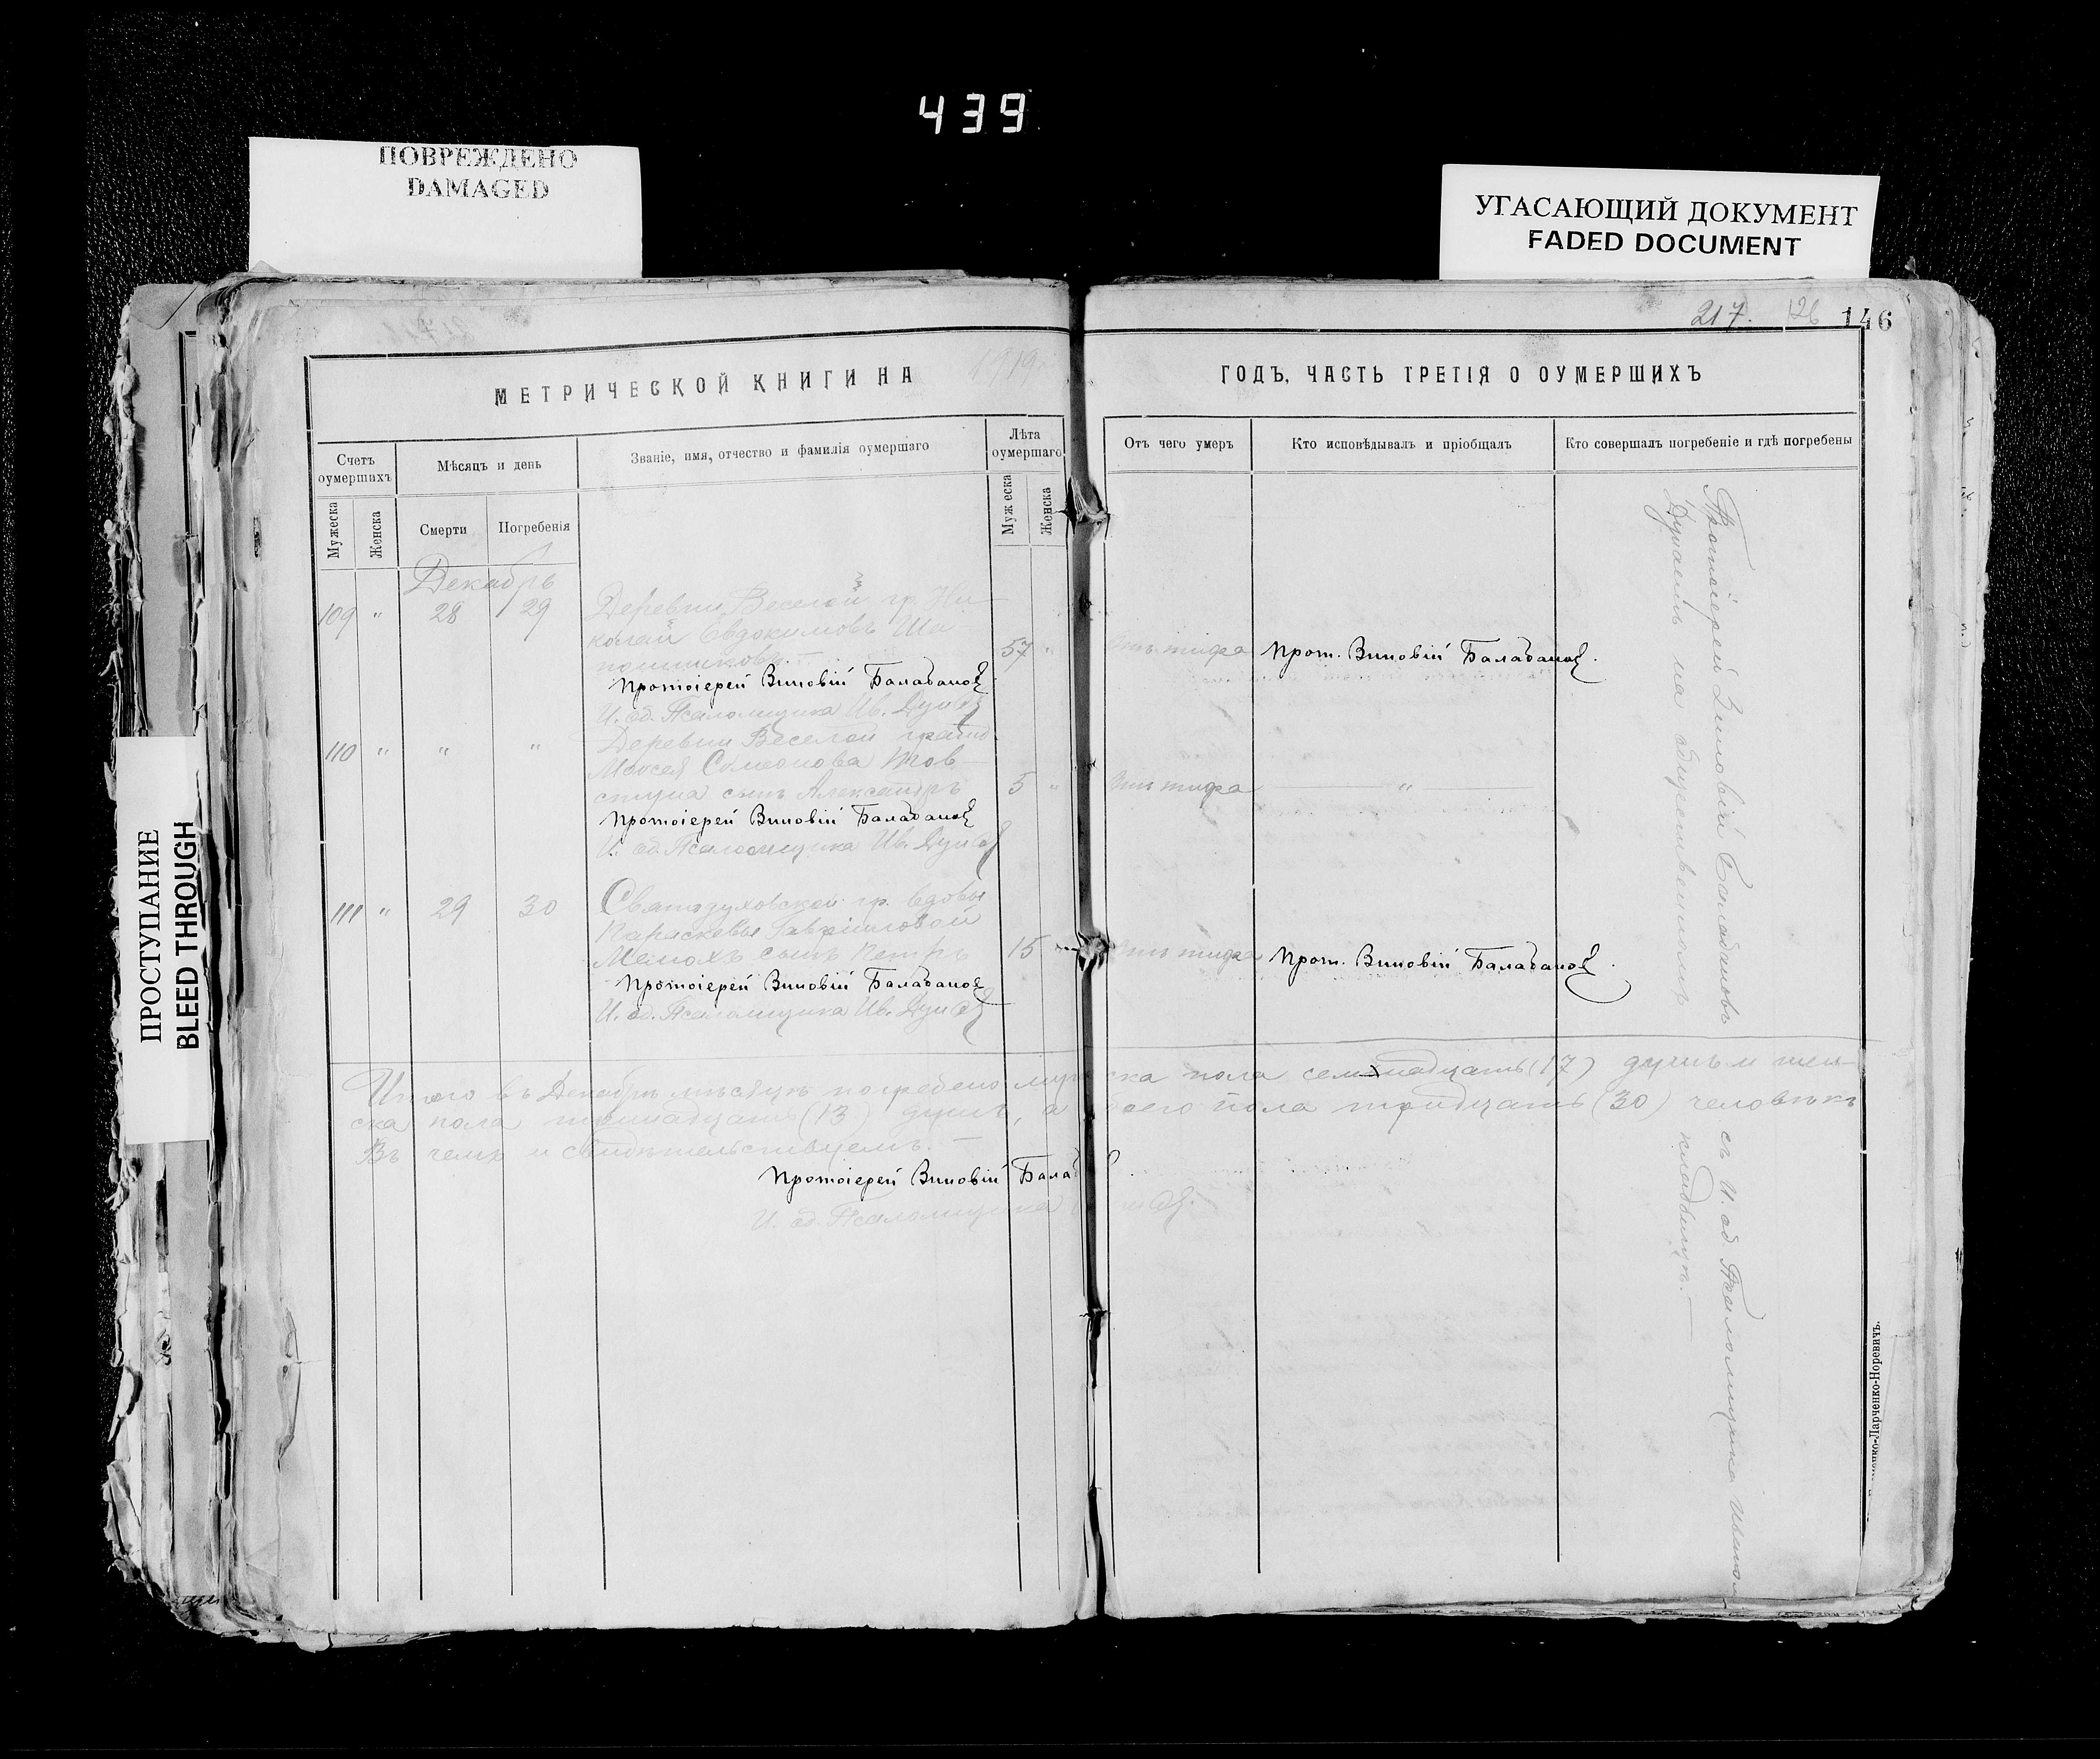 439
ПОВРЕЖДЕНО
DAMAGED
УГАСАЮЩИЙ ДОКУМЕНТ
FADED DOCUMENT
ПРОСТУПАНИЕ
BLEED THROUGH
217. 126 146
МЕТРИЧЕСКОЙ КНИГИ НА 1919
ГОДЪ, ЧАСТЬ ТРЕТІЯ О ОУМЕРШИХЪ
Счетъ оумершихъ
Мѣсяцъ и день
Званіе, имя, отчество и фамилія оумершаго
Лѣта оумершаго
Отъ чего умеръ
Кто исповѣдывалъ и пріобщалъ
Кто совершалъ погребеніе и гдѣ погребены
Мужеска
Женска
Смерти
Погребенія
Муж еска
Женска
Декабрь
109 " 28 29 Деревни Веселой гр. Ни-
колай Евдокимовъ
57 " Отъ тифа Прот. Зиновій Балабановъ.
Протоіерей Зиновій Балабановъ
И. об. Псаломщика Ив.
110 " " " Деревни Веселой гражд.
Моѵсея Симеонова Тов-
стуха сынъ Александръ
5 " Отъ тифа "
Протоіерей Зиновій Балабановъ
И. об. Псаломщика Ив.
111 " 29 30 Святодуховской гр. вдовы
Параскевы Гаврииловой
сынъ Петръ
15 Отъ тифа Прот. Зиновій Балабановъ.
Протоіерей Зиновій Балабановъ
И. об. Псаломщика Ив.
Протоіерей Зиновій Балабановъ съ И. об. Псаломщика Иваном
на общественномъ кладбищѣ. —
Итого въ Декабрѣ мѣсяцѣ погребено муже ска пола семнадцать (17) душъ и жен-
ска пола тринадцать (13) душъ, а обоего пола тридцать (30) человѣкъ
Въ чемъ и свидѣтельствуемъ. —
Протоіерей Зиновій Балаб
И. об. Псаломщика
-Ларченко-Норевичъ.